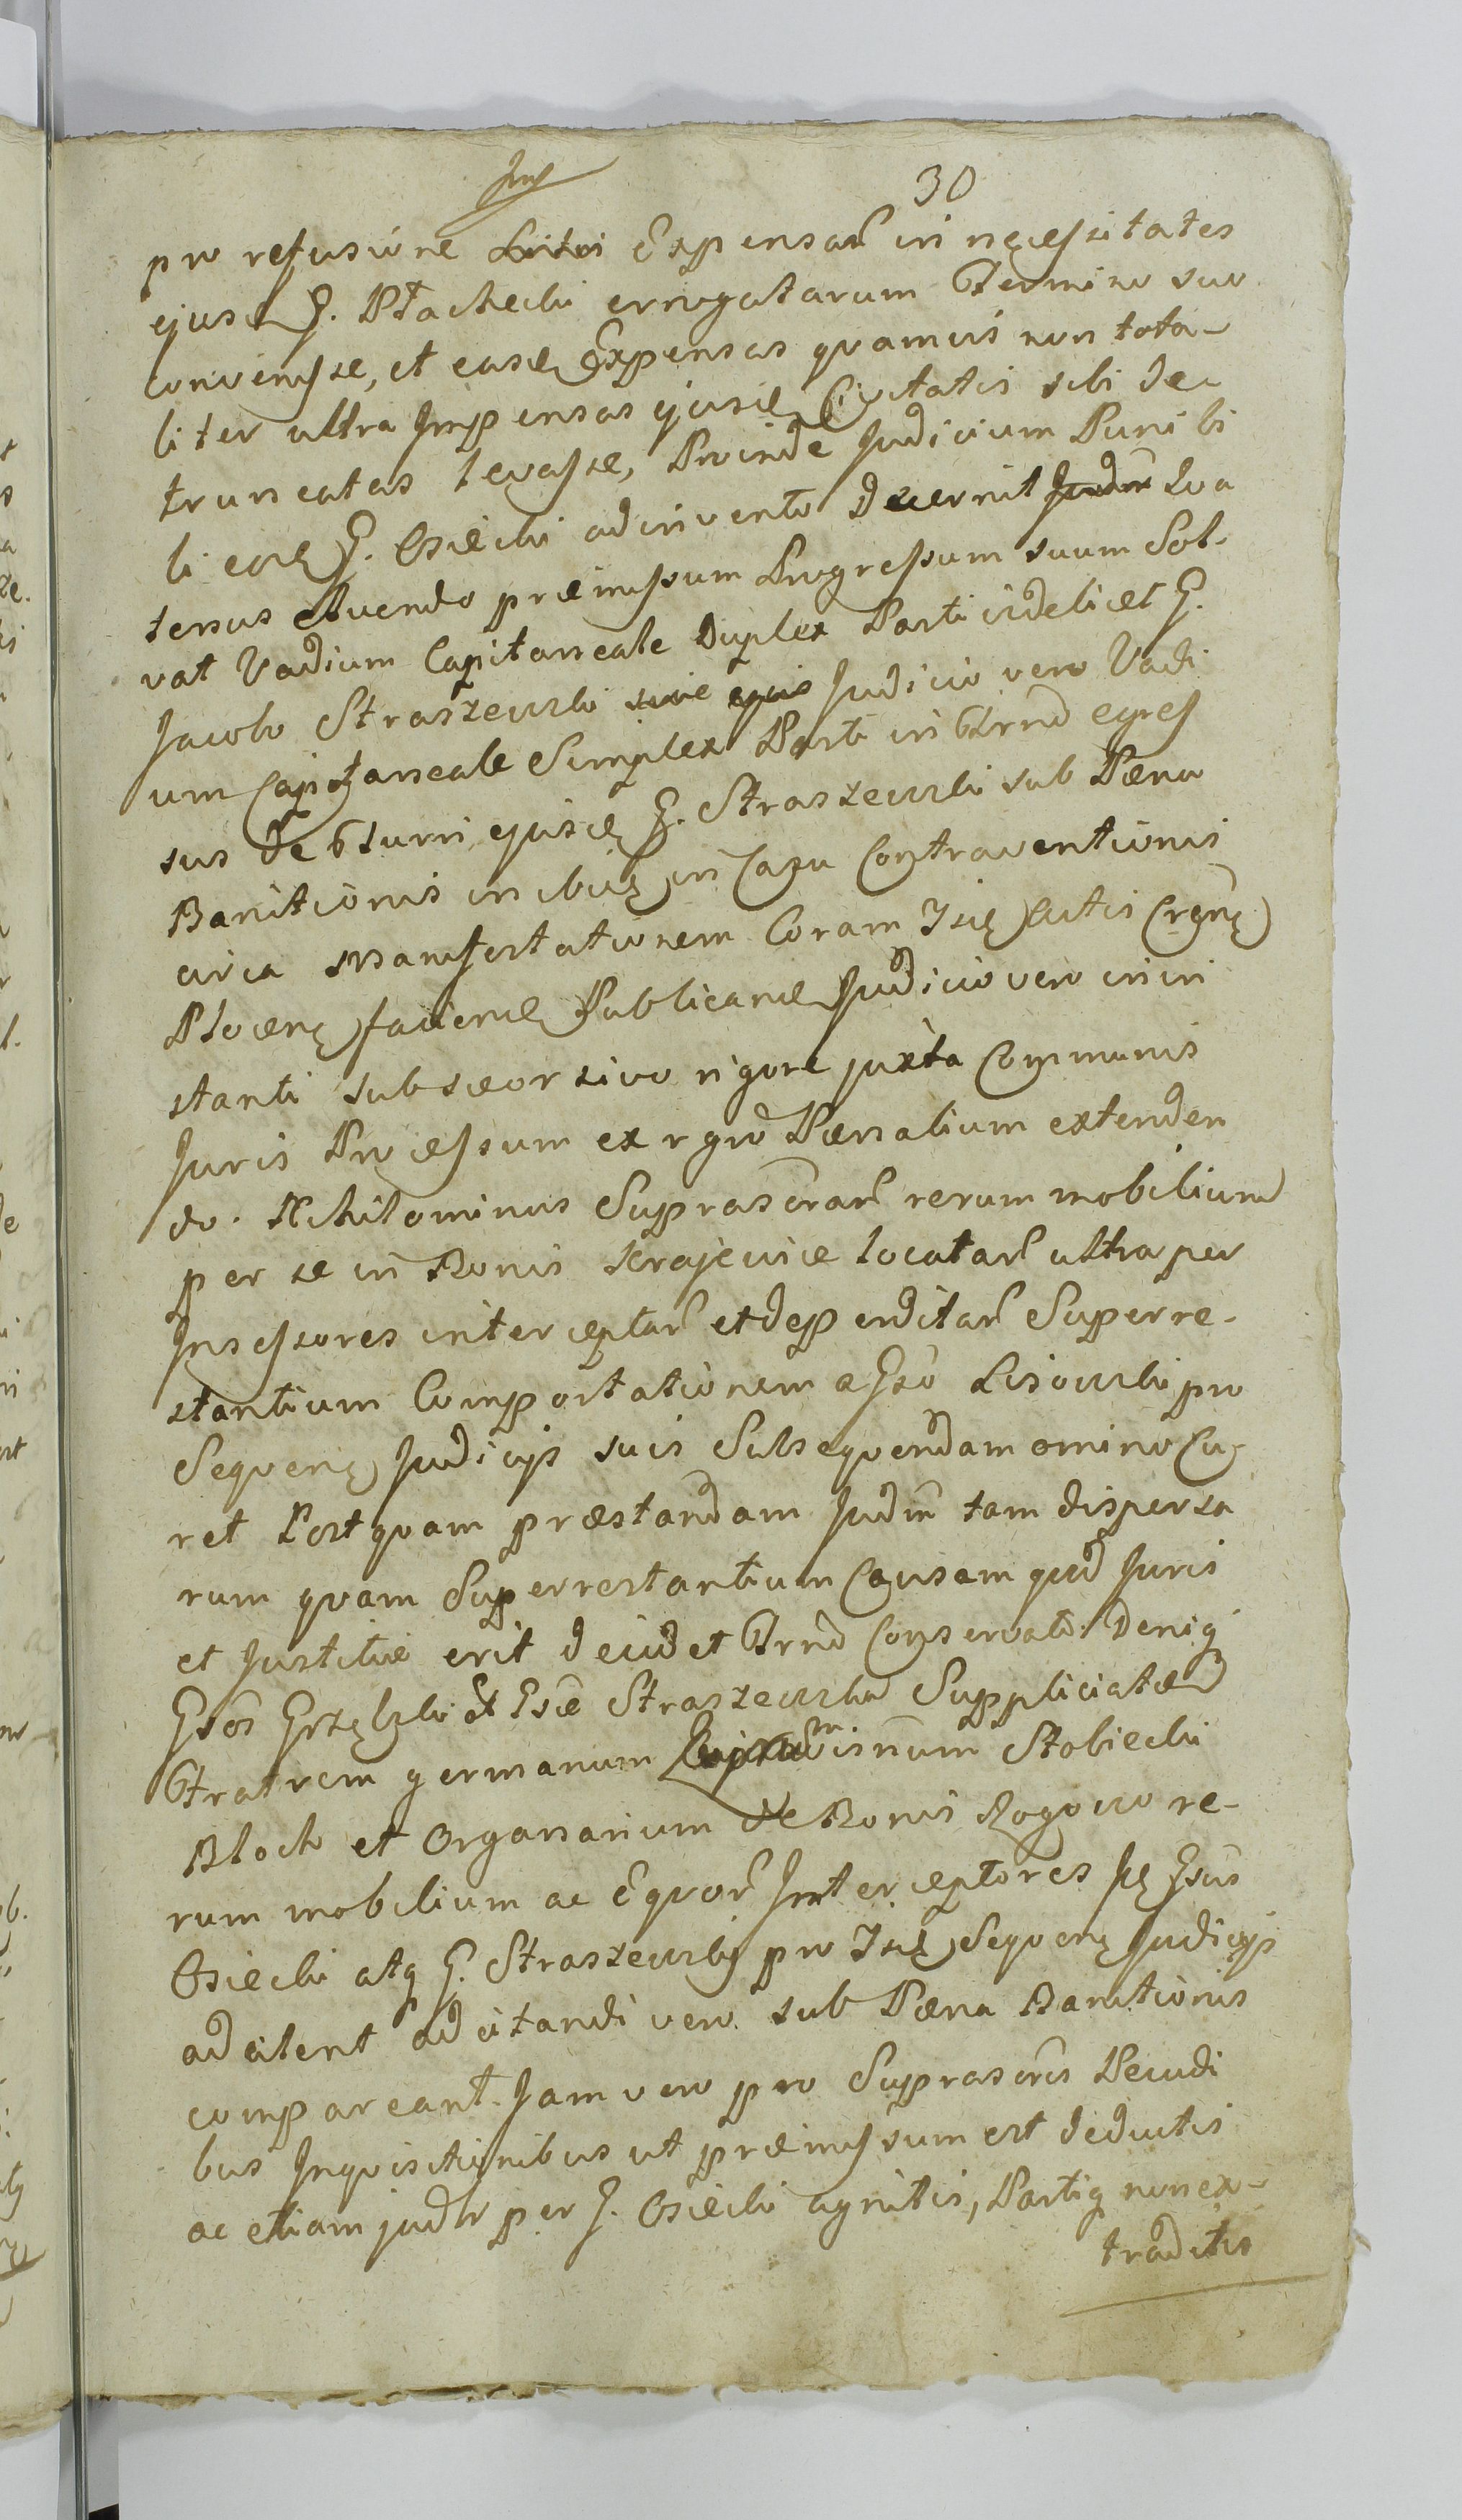 30
pro refusione Expensar in necessitates
ejusd G. Płachecki errogatarum Termino suo
convenisse, et easd Expensas quamvis non tota-
liter ultra Impensas ejusd Civitatis sibi de
truncatas levasse, Proinde Judicium Punibi
li eod G. Osiecki adinvento Decernit Judm Qua
tenus eluendo præmissum Progressum suum Sol-
vat Vadium Capitaneale Duplex Parti videlicet G.
Jacobo Straszewski Judicio vero Vadi
um Capitaneale Simplex Parti in Turri egres
sus de Turri ejusd G. Straszewski sub Pæna
Banitionis in ibid in Casu Contraventionis
circa manifestationem Coram Isd Actis
Plocen faciend Publicand Judicio vero in in
stanti sub seorsivo rigore juxta Communis
Juris Processum ex rgro Pænalium extenden
do. Nihilominus Suprascrar rerum mobilium
per se in Bonis Krajewice locatar ultra per
Insessores interceptar et deperditar Superre-
stantium Comportationem a Gso Lisowski pro
Sequen Judicijs suis Subsequendam omino Cu-
ret Postquam præstandam Judm tam dispersa
rum quam Superrestantium Causam quid Juris
et Justitiæ erit decidet Conservat. Deniq
Gsos Grzębski et Straszewski Suppliciatæ
Fratrem germanum Stobiecki
Bloch et Organarium de Bonis Rogowo re-
rum mobilium ac Equor Interceptores Gsus
Osiecki atq G. Straszewski pro Isd Sequen Judicijs
adcitent adcitandi vero sub Pæna Banitionis
compareant. Jam vero pro Suprascris Decudi
bus Inquisitionibus ut præmissum est deductis
ac etiam judr per G. Osiecki agnitis, Partiq non ex-
traditis